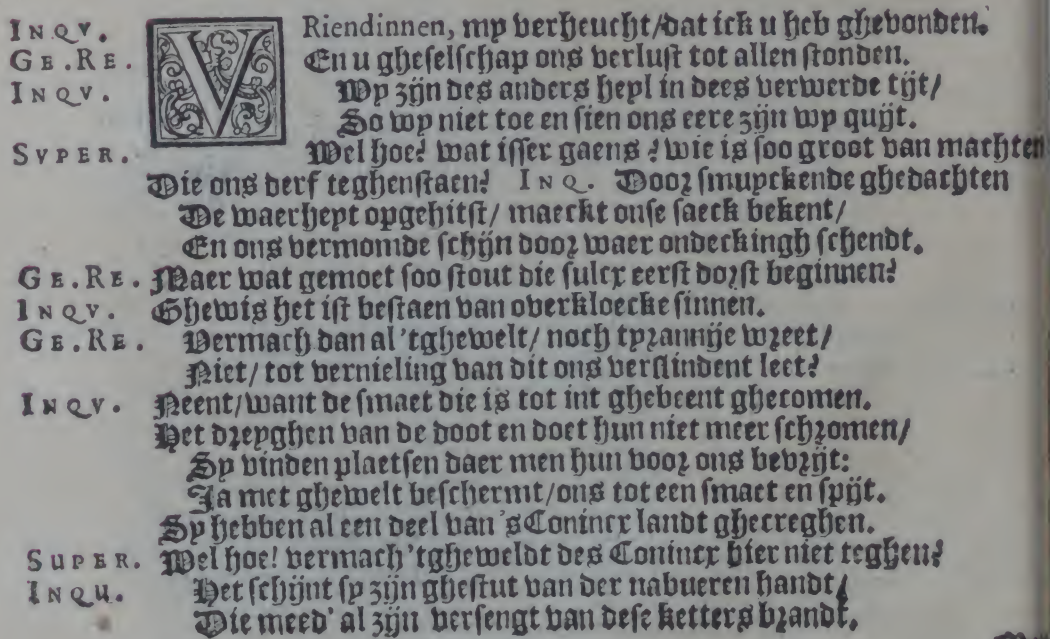 INQV. VRiendinnen, my verheucht/dat ick u heb ghevonden.
GE.RE. En u gheselschap ons verlust tot allen stonden.
INQV. Wy zijn des anders heyl in dees verwerde tijt/
So wy niet toe en sien ons eere zijn wy quijt.
SVPER. Wel hoe? wat isser gaens? wie is soo groot van machten
Die ons derf teghenstaen? INQ. Door smuyckende ghedachten
De waerheyt opgehitst/ maeckt onse saeck bekent/
En ons vermomde schijn door waer ondeckingh schendt.
GE.RE. Maer wat gemoet soo stout die sulcx eerst dorst beginnen?
INQV. Ghewis het ist bestaen van overkloecke sinnen.
GE.RE. Vermach dan al 'tghewelt/ noch tyrannije wreet/
Niet/ tot vernieling van dit ons verslindent leet?
INQV. Neent/want de smaet die is tot int ghebeent ghecomen.
Het dreyghen van de doot en doet hun niet meer schromen/
Sy vinden plaetsen daer men hun voor ons bevrijt:
Ja met ghewelt beschermt/ons tot een smaet en spijt.
Sy hebben al een deel van 's Conincx landt ghecreghen.
SUPER. Wel hoe! vermach 'tgheweldt des Conincx hier niet teghen?
INQU. Het schijnt sy zijn ghestut van der nabueren handt/
Die meed' al zijn versengt van dese ketters brandt.